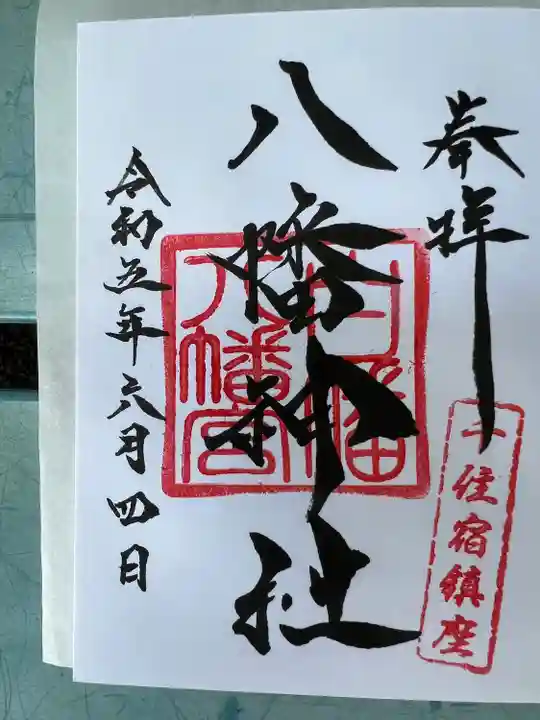 奉拝
千住宿鎮座
八幡神社
八幡宮
令和五年六月四日